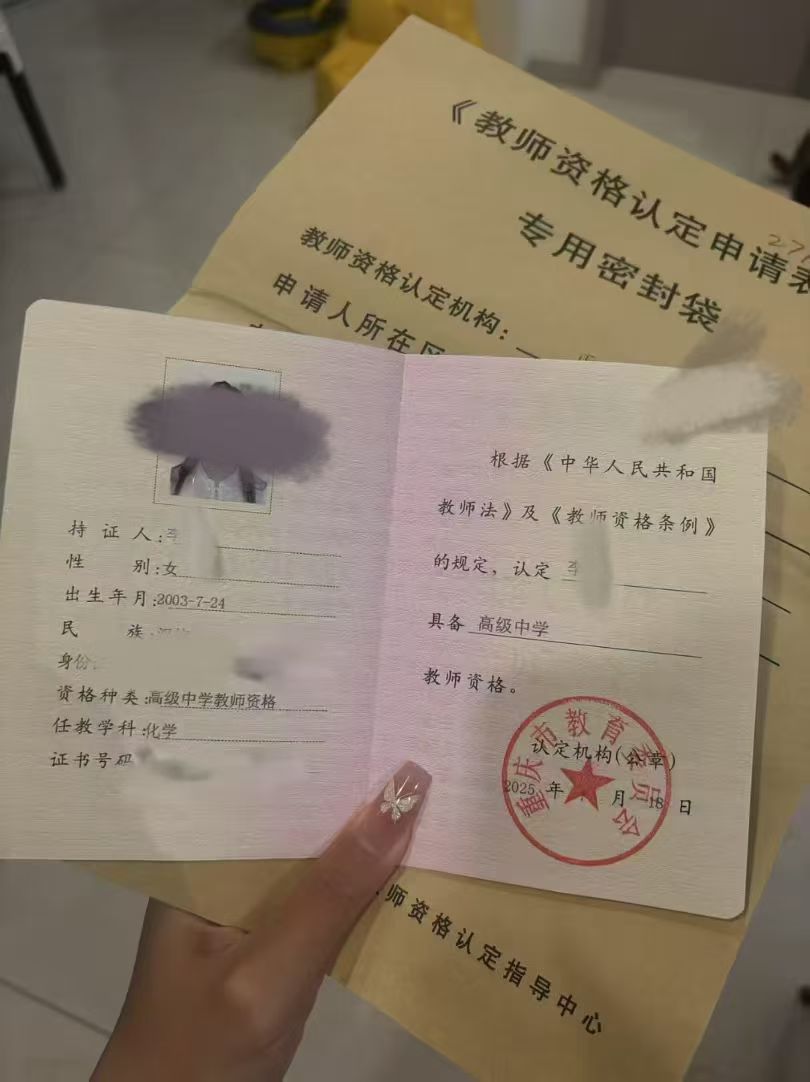 《教师资格认定申请表
专用密封袋
271
教师资格认定机构：
申请人所在
持证人：李
性别：女
出生年月：2003-7-24
民族：
身份
资格种类：高级中学教师资格
任教学科：化学
证书号码
根据《中华人民共和国
教师法》及《教师资格条例》
的规定，认定 李
具备 高级中学
教师资格。
认定机构（公章）
2025 年 月 18 日
重庆市教育委员会
师资格认定指导中心